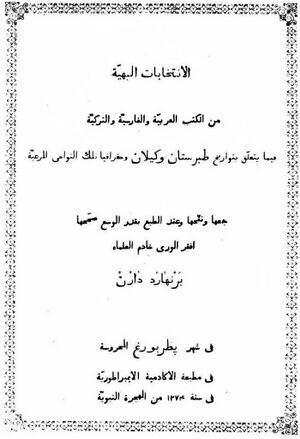 الانتخابات البهيّة
من الكتب العربيّة والفارسيّة والتركيّة
فيما يتعلّق بتواريخ طبرستان وكيلان وجغرافيا تلك النواحى المرعيّة
جمعها ونظمها وعند الطبع بقدر الوسع صحّحها
افقر الورى خادم العلماء
برنهارد دارن
فى شهر پطربورغ المحروسة
فى مطبعة الاكادمية الايمبراطوريّة
فى سنة ١٢٧٤ من الهجرة النبويّة